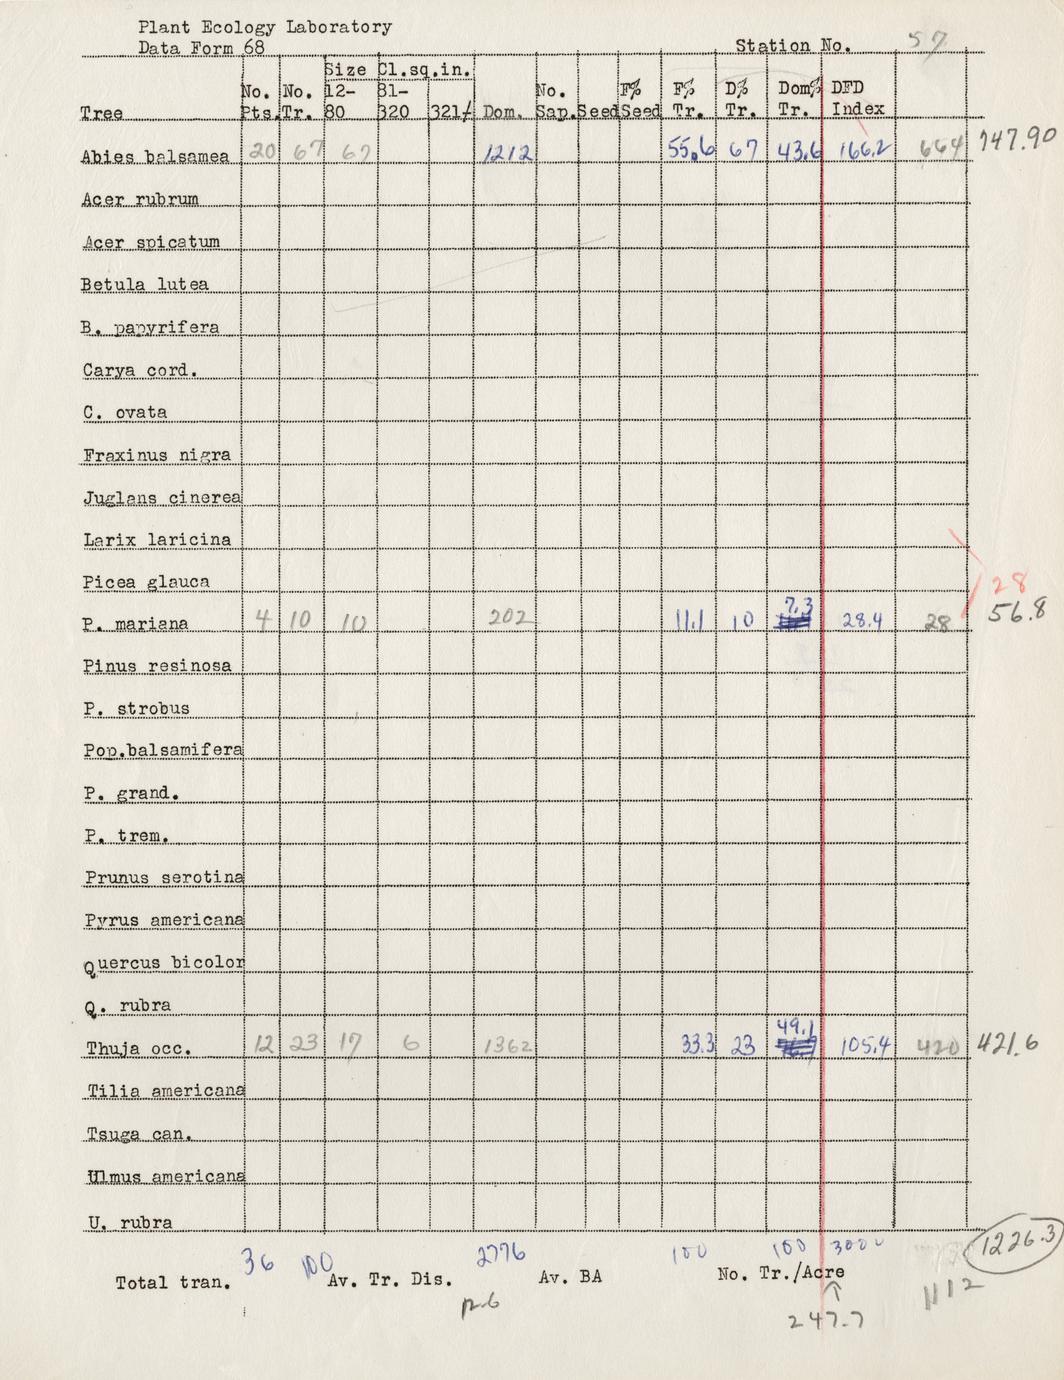 Plant Ecology Laboratory
Data Form 68
Station No. 57
Size Cl.sq.in.
No. No. 12- 81- No. F% F% D% Dom% DFD
Tree Pts. Tr. 80 320 321/ Dom. Sap. Seed Seed Tr. Tr. Tr. Index
Abies balsamea 20 67 67 1212 55.6 67 43.6 166.2 664 747.90
Acer rubrum
Acer spicatum
Betula lutea
B. papyrifera
Carya cord.
C. ovata
Fraxinus nigra
Juglans cinerea
Larix laricina
Picea glauca
28
P. mariana 4 10 10 202 11.1 10 7.3 28.4 28 56.8
Pinus resinosa
P. strobus
Pop.balsamifera
P. grand.
P. trem.
Prunus serotina
Pyrus americana
Quercus bicolor
Q. rubra
Thuja occ. 12 23 17 6 1362 33.3 23 49.1 105.4 420 421.6
Tilia americana
Tsuga can.
Ulmus americana
U. rubra
36 100 2776 100 100 300 1226.3
Total tran. Av. Tr. Dis. Av. BA No. Tr./Acre 1112
12.6 247.7